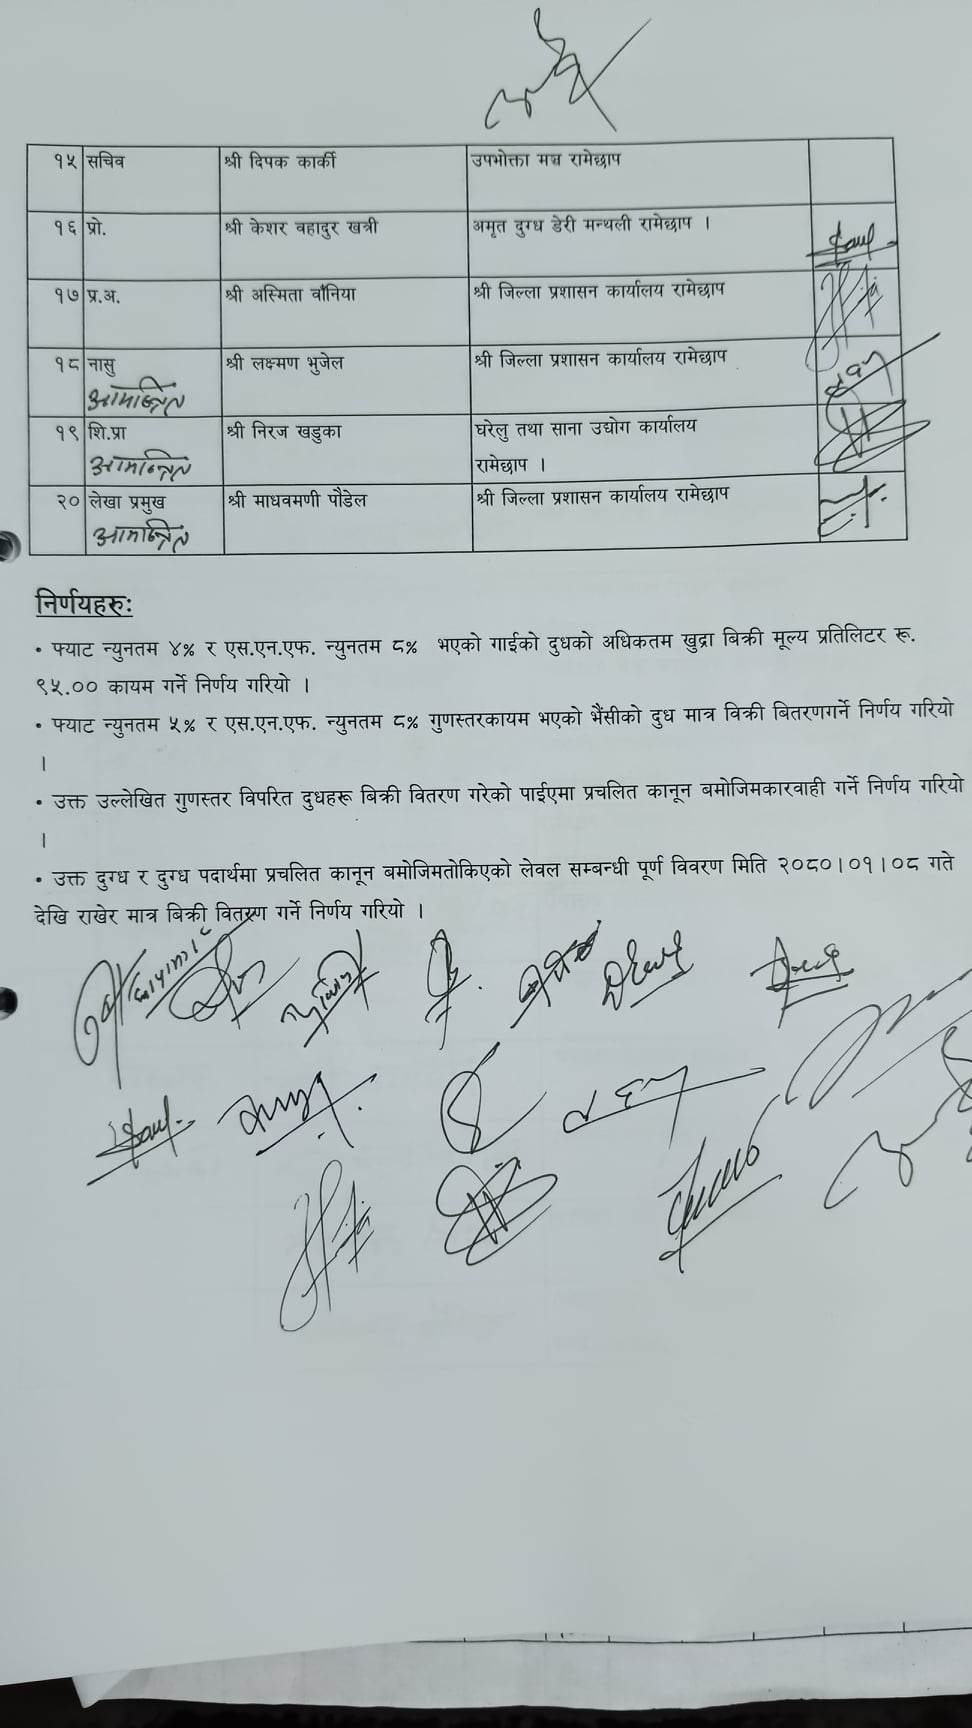 १५ सचिव श्री दिपक कार्की उपभोक्ता मञ्च रामेछाप
१६ प्रो. श्री केशर वहादुर खत्री अमृत दुग्ध डेरी मन्थली रामेछाप ।
१७ प्र.अ. श्री अस्मिता वाँनिया श्री जिल्ला प्रशासन कार्यालय रामेछाप
१८ नासु श्री लक्ष्मण भुजेल श्री जिल्ला प्रशासन कार्यालय रामेछाप
आमन्त्रित
१९ शि.प्रा श्री निरज खड्का घरेलु तथा साना उद्योग कार्यालय
आमन्त्रित रामेछाप ।
२० लेखा प्रमुख श्री माधवमणी पौडेल श्री जिल्ला प्रशासन कार्यालय रामेछाप
आमन्त्रित
निर्णयहरुः
• फ्याट न्युनतम ४% र एस.एन.एफ. न्युनतम ८% भएको गाईको दुधको अधिकतम खुद्रा बिक्री मूल्य प्रतिलिटर रू.
९५.०० कायम गर्ने निर्णय गरियो ।
• फ्याट न्युनतम ५% र एस.एन.एफ. न्युनतम ८% गुणस्तरकायम भएको भैंसीको दुध मात्र विक्री बितरणगर्ने निर्णय गरियो
।
• उक्त उल्लेखित गुणस्तर विपरित दुधहरू बिक्री वितरण गरेको पाईएमा प्रचलित कानून बमोजिमकारवाही गर्ने निर्णय गरियो
।
• उक्त दुग्ध र दुग्ध पदार्थमा प्रचलित कानून बमोजिमतोकिएको लेवल सम्बन्धी पूर्ण विवरण मिति २०८०।०१।०८ गते
देखि राखेर मात्र बिक्री वितरण गर्ने निर्णय गरियो ।